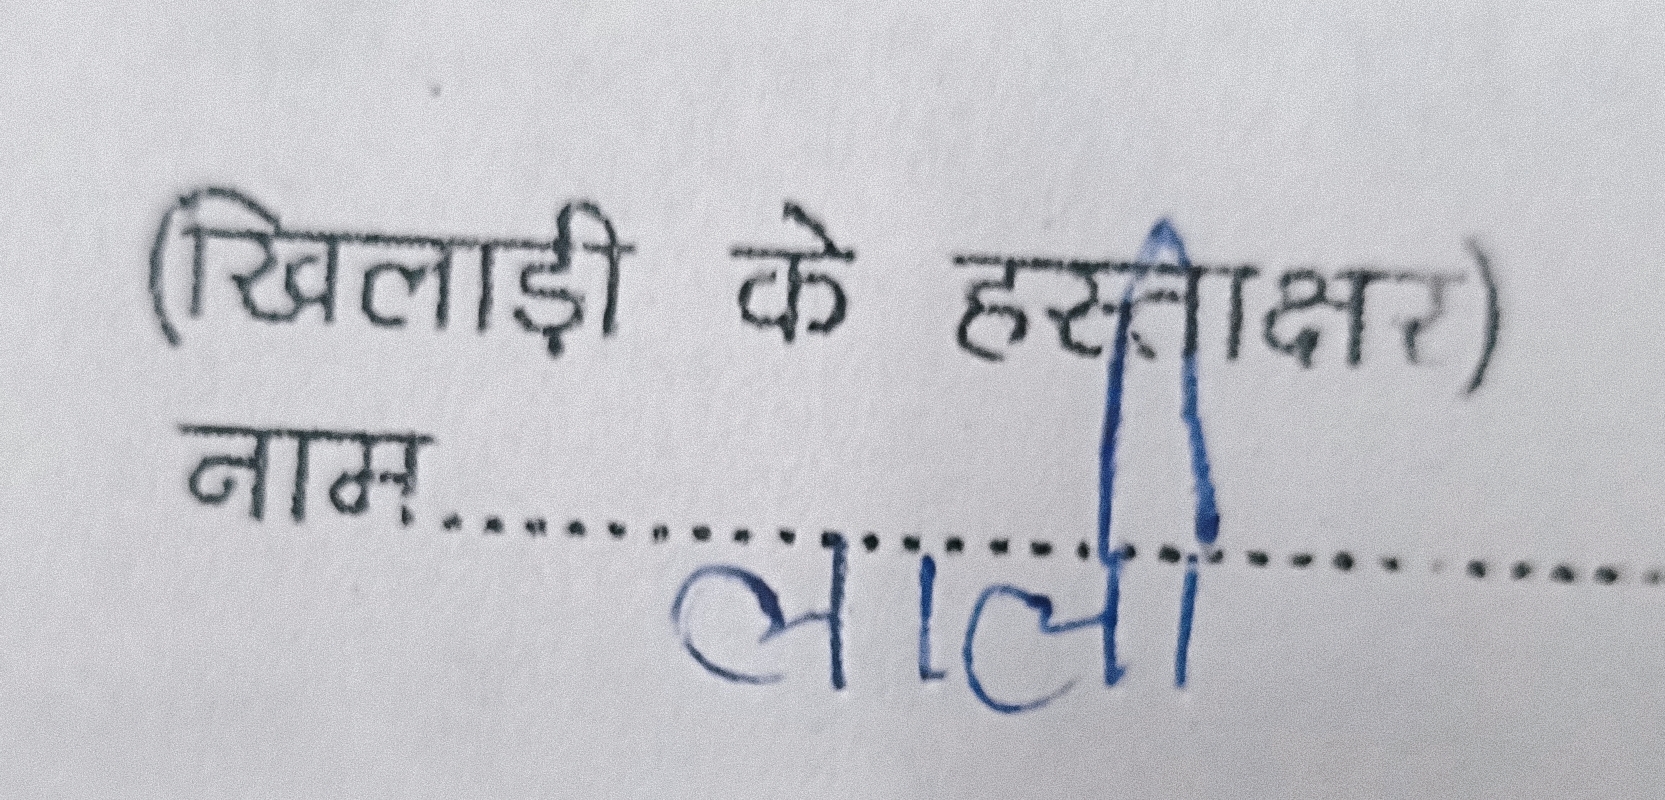 (खिलाड़ी के हस्ताक्षर)
नाम....................................
लाली